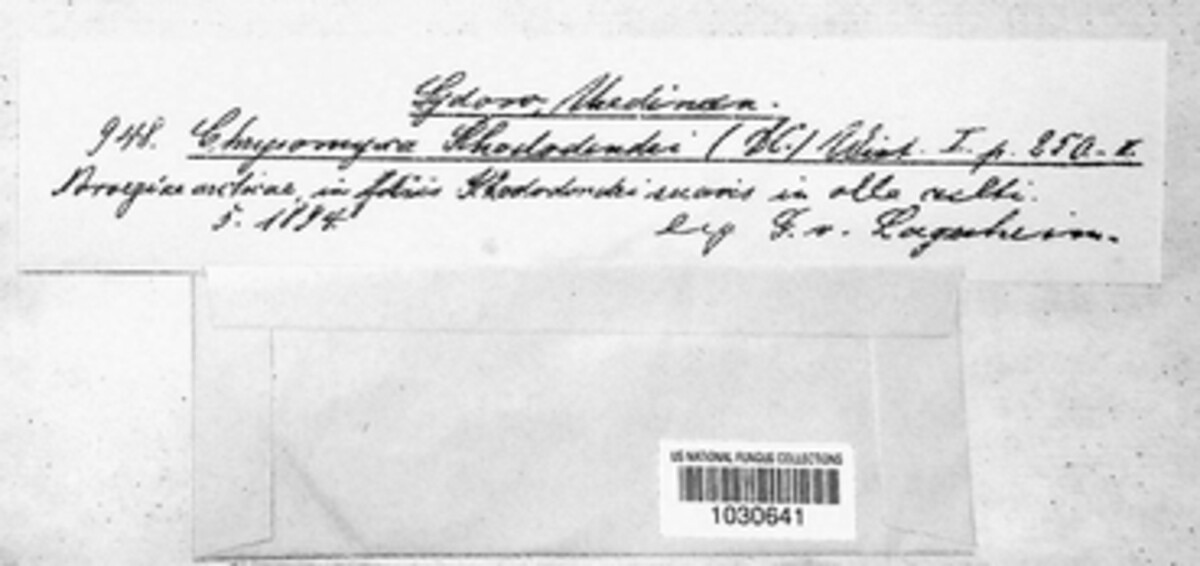 Sydow, Uredineen.
948. Chrysomyxa Rhododendri (DC.) Wint. I. p. 250. II.
Norvegiae arcticae, in foliis Rhododendri in olla culti.
5. 1894
leg G. v. Lagerheim.
US NATIONAL FUNGUS COLLECTIONS
1030641